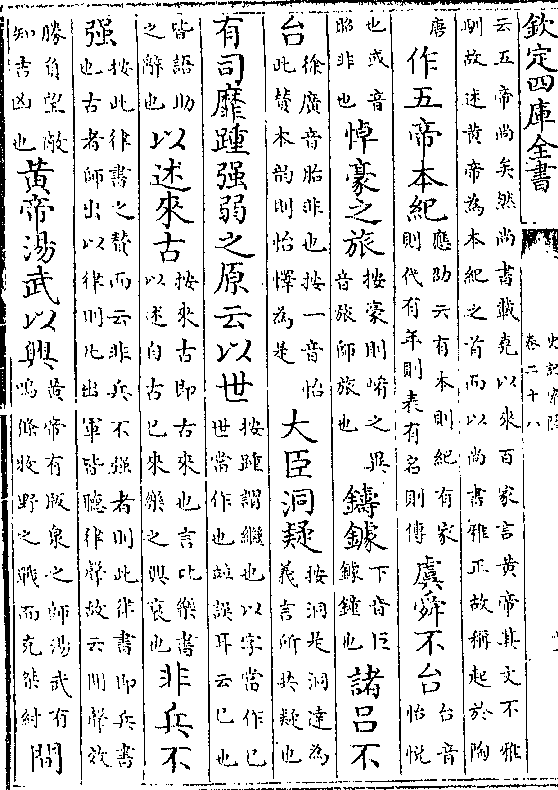 欽定四庫全書 史記索隱 卷二十八
云五帝尚矣然尚書載堯以來百家言黄帝其文不雅
馴故述黄帝為本紀之首而以尚書雅正故稱起於陶
唐
作五帝本紀
應劭云有本則紀有家
則代有年則表有名則傳
虞舜不台
台音
怡悦
也或音
昭非也
悼豪之旅
按豪則崤之異
音旅師旅也
鑄鐻
下音巨
鐻鐘也
諸呂不
台
徐廣音胎非也按一音怡
此贊本韵則怡懌為是
大臣洞疑
按洞是洞達為
義言所共疑也
有司靡踵强弱之原云以世
按踵謂繼也以字當作已
世當作也並誤耳云已也
皆語助
之辭也
以述來古
按來古即古來也言比樂書
以述自古已來樂之興衰也
非兵不
强
按此律書之贊而云非兵不强者則此律書即兵書
也古者師出以律則凡出軍皆聽律聲故云聞聲效
勝負望敵
知吉凶也
黄帝湯武以興
黄帝有版泉之師湯武有
鳴條牧野之戰而克桀紂
間